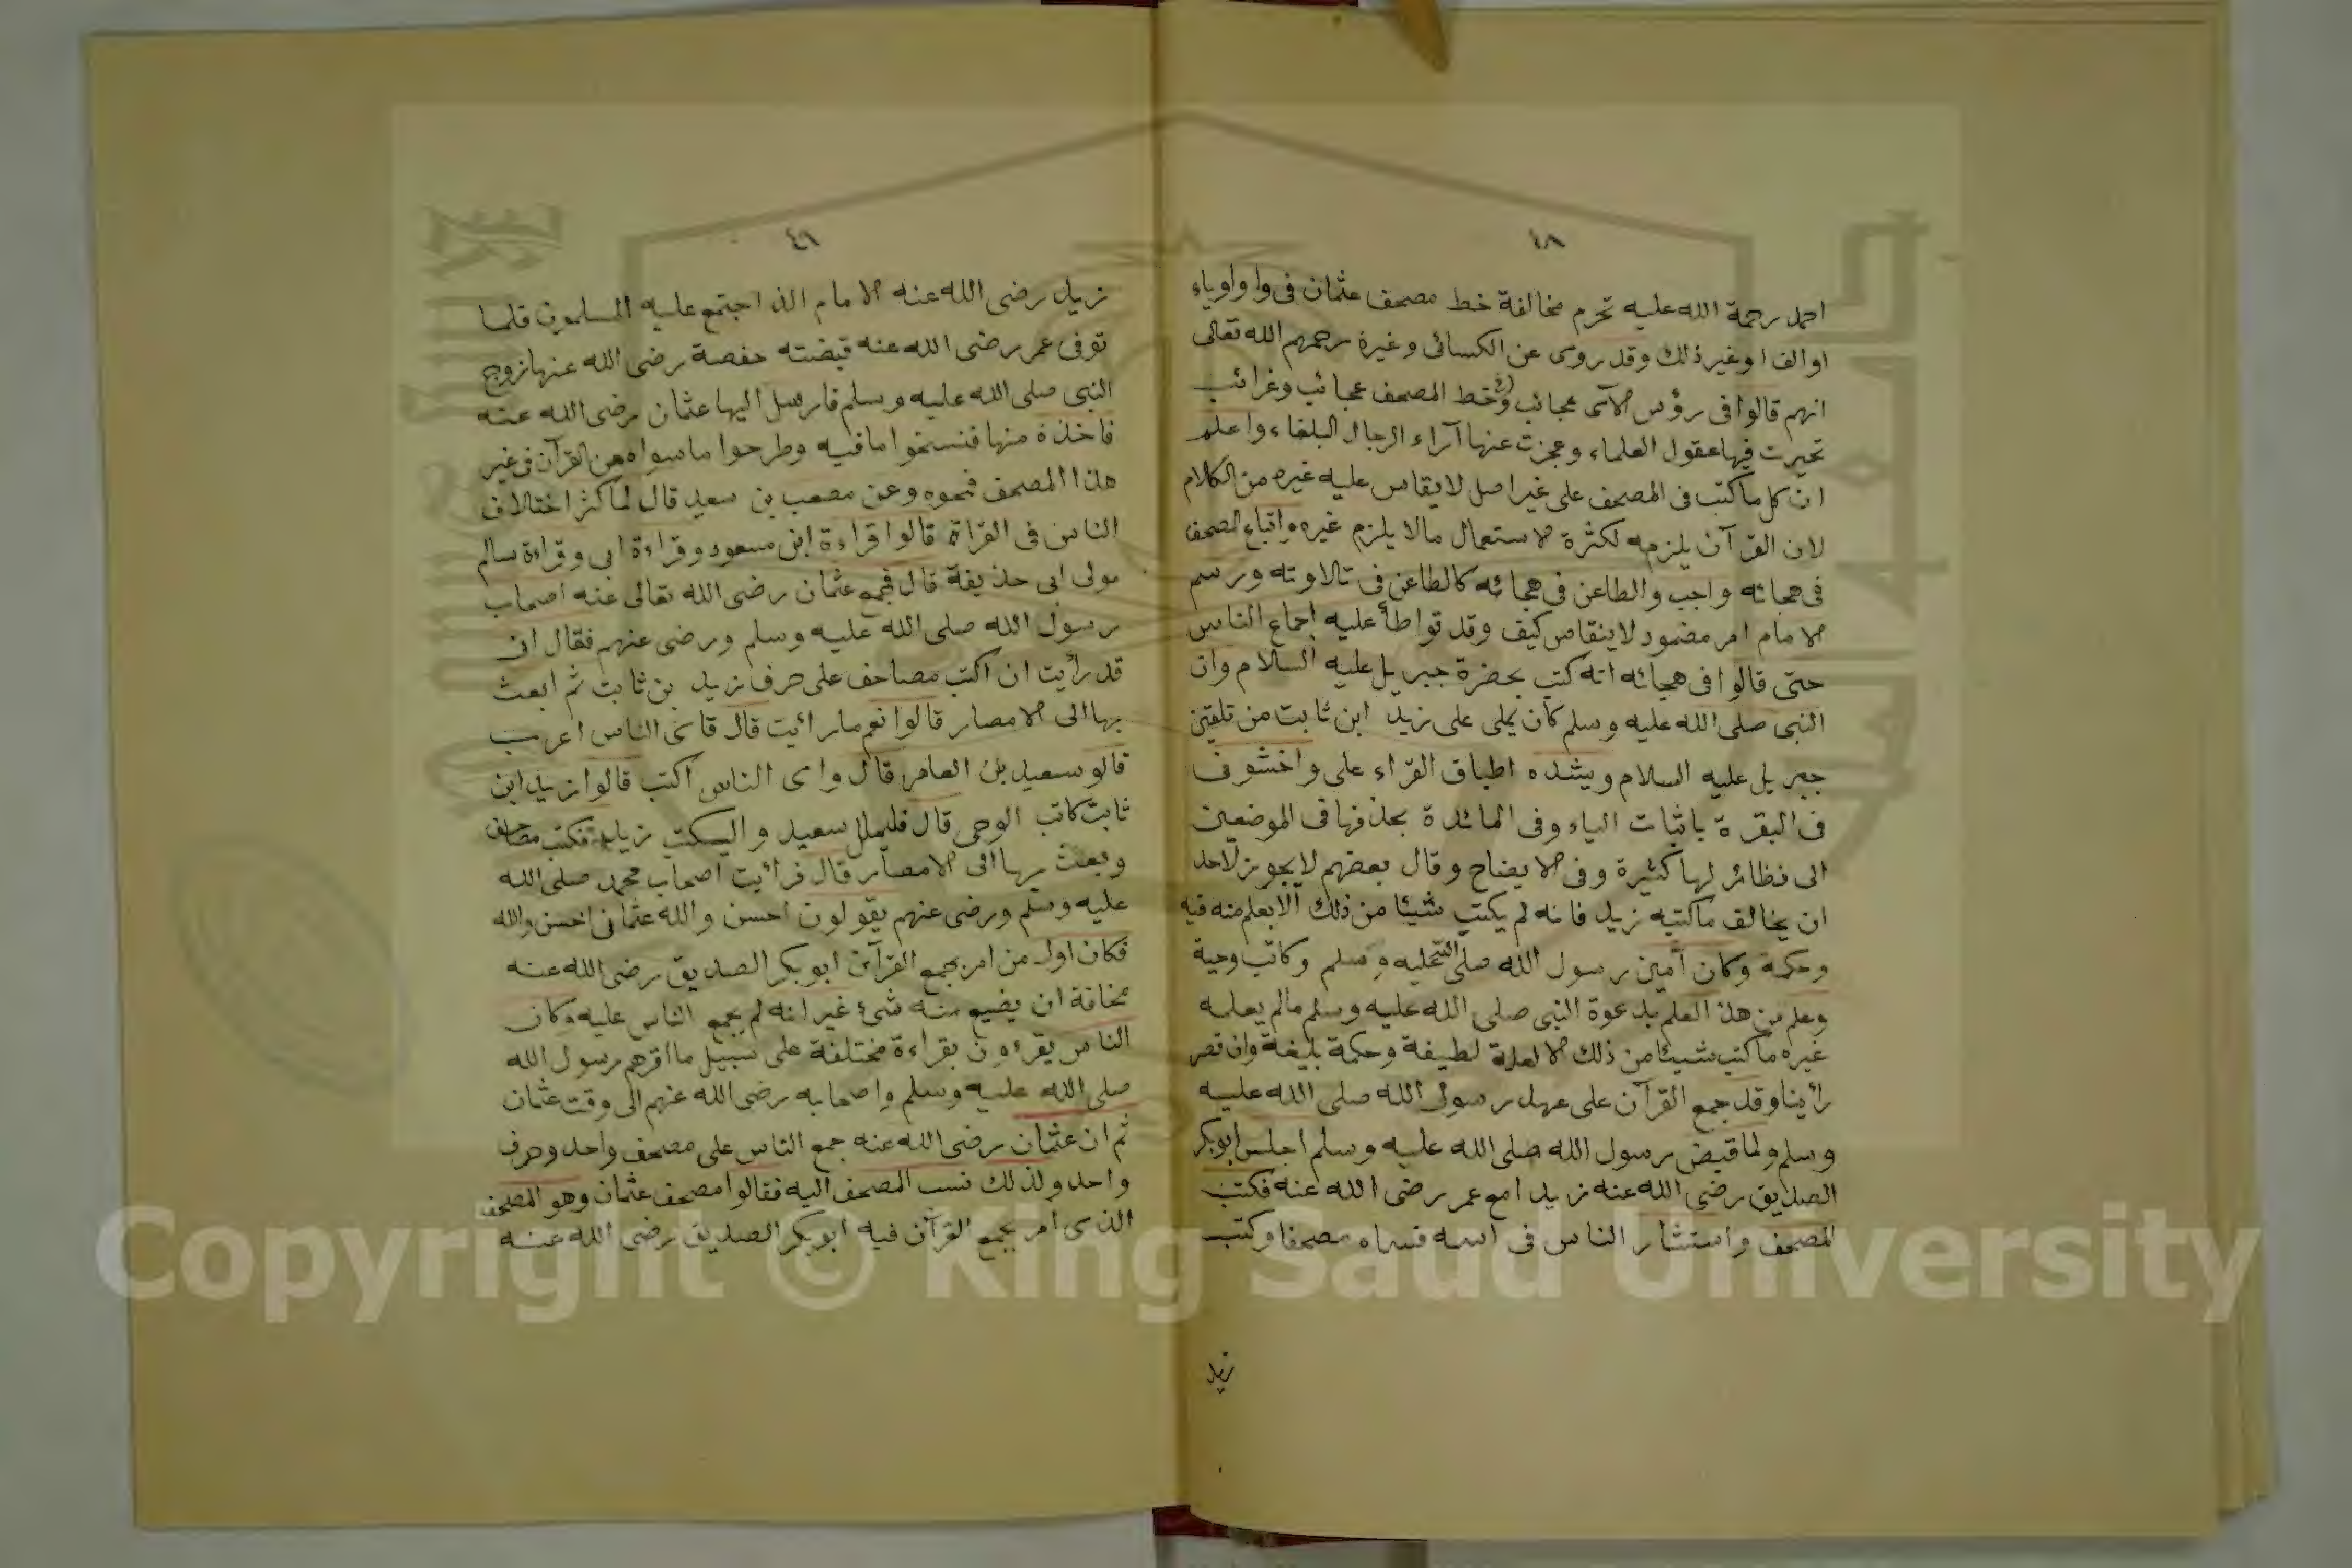 ٤٨
احمد رحمة الله عليه تحرم مخالفة خط مصحف عثمان فى واو اوياء
او الف او غير ذلك وقد روى عن الكسائى وغيرة رحمهم الله تعالى
انهم قالوا فى رؤس الآى عجائب وخط المصحف عجائب وغرائب
تحيرت فيها عقول العلماء وعجزت عنها آراء الرجال البلغاء واعلم
ان كل ما كتب فى المصحف على غير اصل لا يقاس عليه غيره من الكلام
لان القرآن يلزمه لكثرة الاستعمال مالا يلزم غيره واتباع المصحف
فى هجائه واجب والطاعن فى هجائه كالطاعن فى تلاوته ورسم
الامام امر مضمود لا ينقاس كيف وقد تواطأ عليه اجماع الناس
حتى قالوا فى هجائه انه كتب بحضرة جبريل عليه السلام وان
النبى صلى الله عليه وسلم كان يملى على زيد ابن ثابت من تلقين
جبريل عليه السلام ويشده اطباق القراء على واخشونى
فى البقرة باثبات الياء وفى المائدة بحذفها فى الموضعين
الى نظائر لها كثيرة وفى الايضاح وقال بعضهم لا يجوز لاحد
ان يخالف ماكتبه زيد فانه لم يكتب شيئا من ذلك الا بعلم منه فيه
وحكمة وكان أمين رسول الله صلى الله عليه وسلم وكاتب وحية
وعلم من هذ العلم بدعوة النبى صلى الله عليه وسلم مالم يعلمه
غيره ماكتب شيئا من ذلك الا لعلة لطيفة وحكمة بليغة وان قصر
رأينا وقد جمع القرآن على عهد رسول الله صلى الله عليه
وسلم ولما قبض رسول الله صلى الله عليه وسلم اجلس ابوبكر
الصديق رضى الله عنه زيدا مع عمر رضى الله عنه فكتب
المصحف واستشار الناس فى اسمه فسماه مصحفا وكتب
زيد
٤٩
زيد رضى الله عنه الامام الذ اجتمع عليه المسلمون فلما
توفى عمر رضى الله عنه قبضته حفصة رضى الله عنها زوج
النبى صلى الله عليه وسلم فارسل اليها عثمان رضى الله عنه
فاخذة منها فنسخوا ما فيه وطرحوا ما سواه من القرآن فى غير
هذا المصحف فمحوه وعن مصعب بن سعيد قال لما كثر اختلاف
الناس فى القراة قالوا قراءة ابن مسعود وقراءة ابى وقراءة سالم
مولى ابى حذيفة قال فجمع عثمان رضى الله تعالى عنه اصحاب
رسول الله صلى الله عليه وسلم ورضى عنهم فقال ان
قد رأيت ان اكتب مصاحف على حرف زيد بن ثابت ثم ابعث
بها الى الامصار قالوا نعم ما رائيت قال فاى الناس اعرب
قالو سعيد بن العاص قال واى الناس اكتب قالوا زيد ابن
ثابت كاتب الوحى قال فليملل سعيد واليكتب زيد فكتب مصاحف
وبعث بها الى الامصار قال فرأيت اصحاب محمد صلى الله
عليه وسلم ورضى عنهم يقولون احسن والله عثمان احسن والله
فكان اول من امر بجمع القرآن ابوبكر الصديق رضى الله عنه
مخافة ان يضيع منه شىء غير انه لم يجمع الناس عليه وكان
الناس يقرءون بقراءة مختلفة على سبيل ما اقرهم رسول الله
صلى الله عليه وسلم واصحابه رضى الله عنهم الى وقت عثمان
ثم ان عثمان رضى الله عنه جمع الناس على مصحف واحد وحرف
واحد ولذلك نسب المصحف اليه فقالوا مصحف عثمان وهو المصحف
الذى أمر بجمع القرآن فيه ابوبكر الصديق رضى الله عنه
Copyright © King Saud University